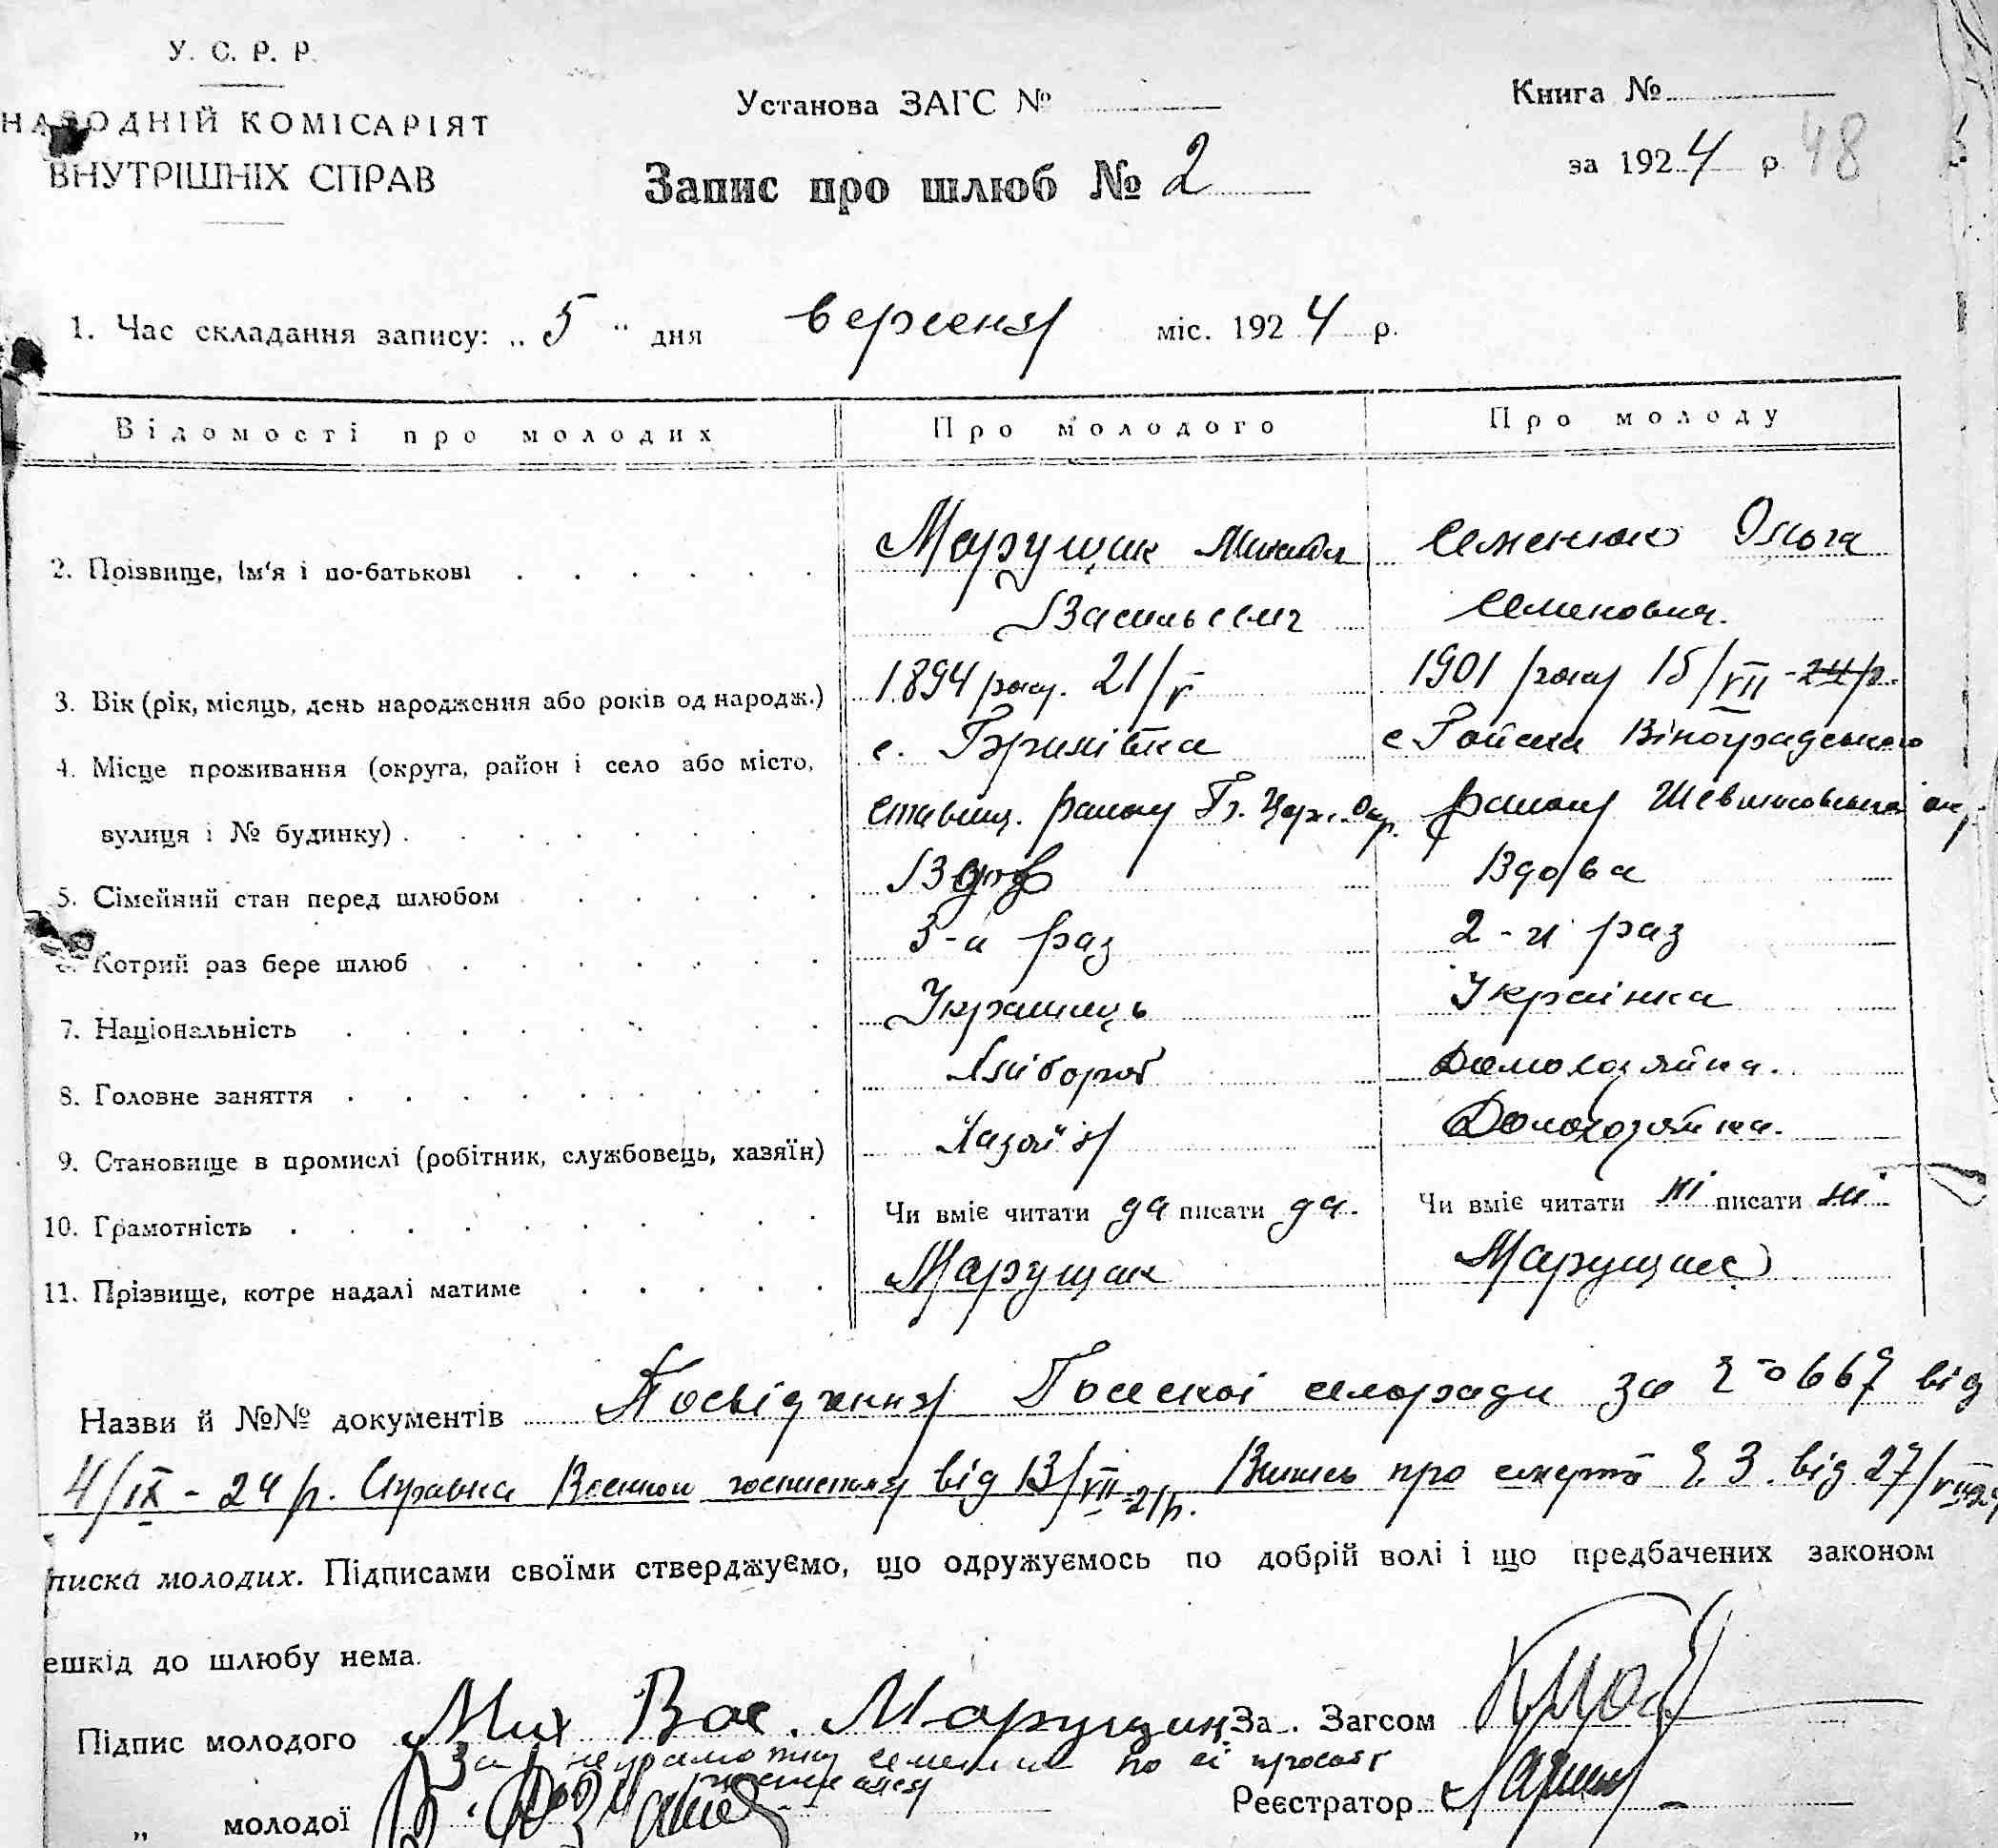 У. С. Р. Р.
НАРОДНІЙ КОМІСАРІЯТ
ВНУТРІШНІХ СПРАВ
Установа ЗАГС №
Книга №
за 1924 р. 48
Запис про шлюб № 2
1. Час складання запису: „ 5 “ дня вересня міс. 1924 р.
Відомості про молодих Про молодого Про молоду
2. Прізвище, ім'я і по-батькові Марущак Михайл Семенюк Ольга
Васильевич Семеновна.
3. Вік (рік, місяць, день народження або років од народж.) 1894 року. 21/V 1901 року 15/VII - 24 р.
4. Місце проживання (округа, район і село або місто, с. Бринівка с Гойска Віноградського
вулиця і № будинку) Ставищ. району Б. Церк. Окр. району Шевченковської ок.
5. Сімейний стан перед шлюбом Вдов Вдова
6. Котрий раз бере шлюб 3-й раз 2-й раз
7. Національність Українець Українка
8. Головне заняття Хлібороб Домохозяйка.
9. Становище в промислі (робітник, службовець, хазяїн) Хазяїн Домохозяйка.
10. Грамотність Чи вміє читати да писати да. Чи вміє читати ні писати ні
11. Прізвище, котре надалі матиме Марущак Марущак
Назви й №№ документів Посвідчення сельради за № 667 від
4/IX - 24 р. Справка госпиталя від 13/VII 21 р. Випись про смерть № 3. від 27/VII 24
писка молодих. Підписами своїми стверджуємо, що одружуємось по добрій волі і що предбачених законом
ешкід до шлюбу нема.
Підпис молодого Мих Вас. Марущик За. Загсом
За неграмотну Семенюк по її просьбі
росписался
„ молодої Реєстратор